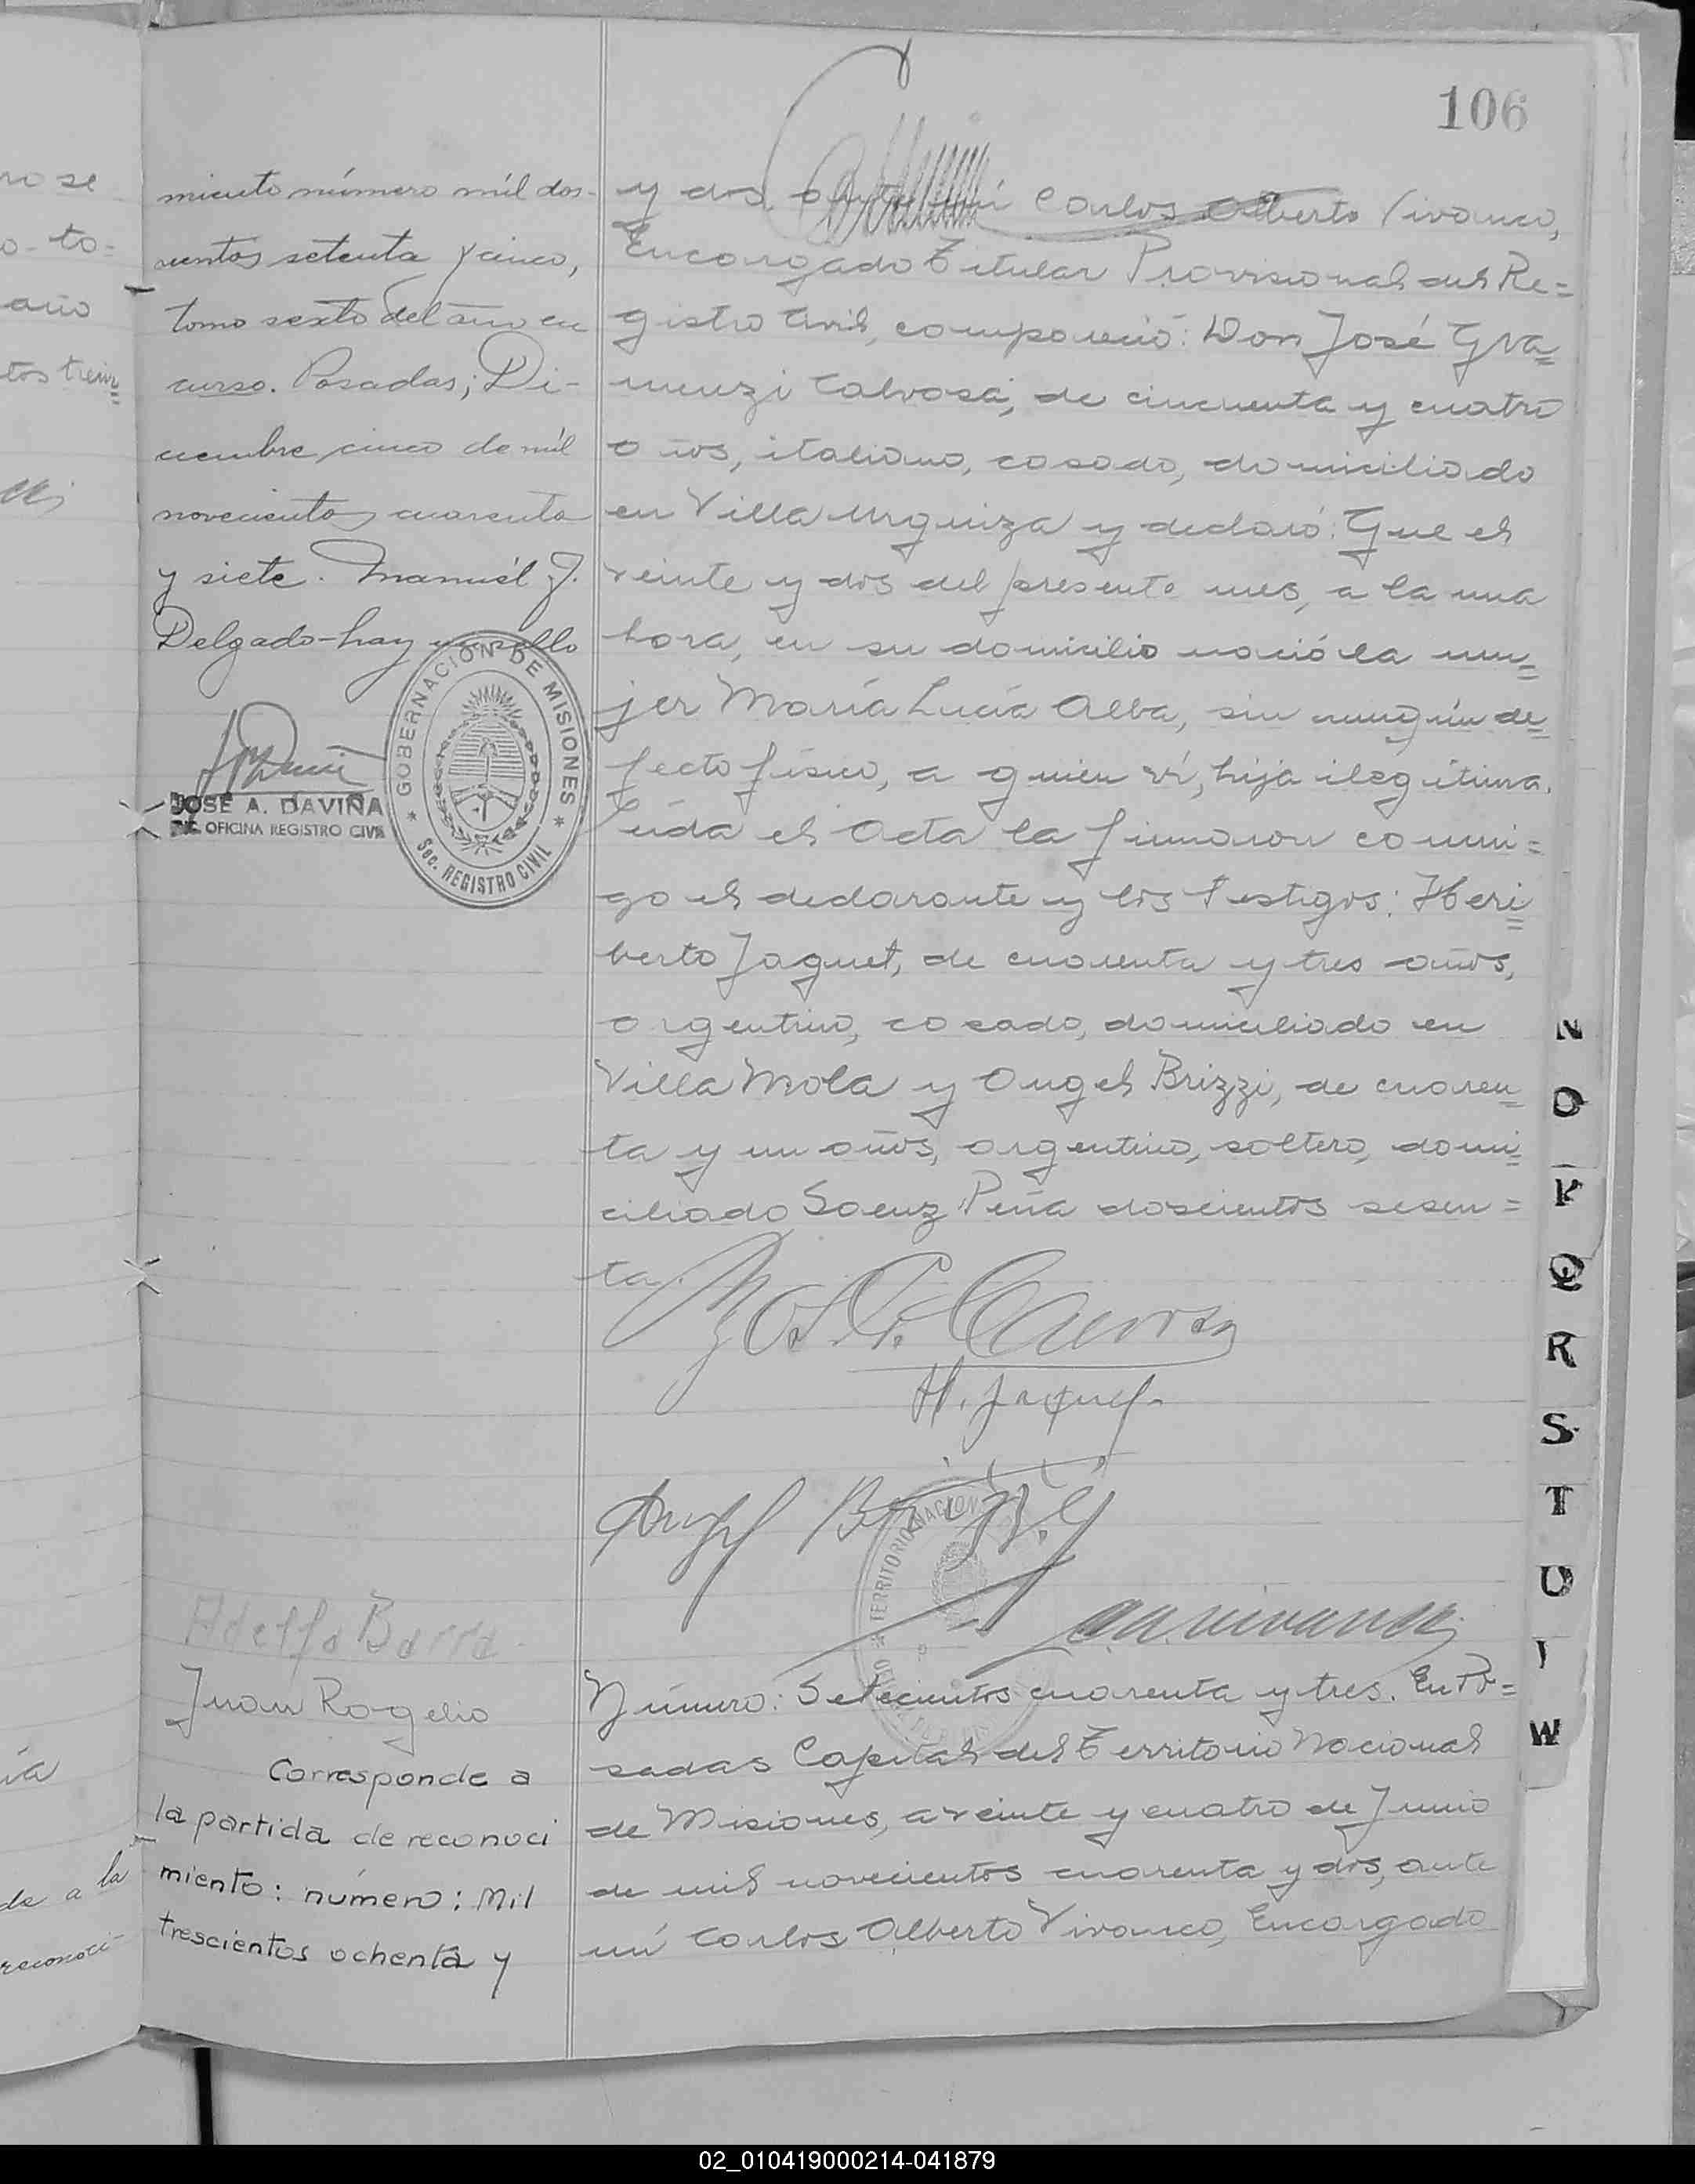 106
miento número mil dos-
cientos setenta y cinco,
tomo sexto del año en
curso. Posadas; Di-
ciembre cinco de mil
novecientos cuarenta
y siete. Manuél J.
Delgado-hay un sello
GOBERNACION DE MISIONES
Sec. REGISTRO CIVIL
JOSÉ A. DAVIÑA
OFICINA REGISTRO CIVIL
y dos, ante mí Carlos Alberto Vivanco,
Encargado Titular Provisional del Re=
gistro Civil, compareció: Don José Gra=
menzi Calvosa, de cincuenta y cuatro
años, italiano, casado, domiciliado
en Villa Urquiza y declaró: Que el
veinte y dos del presente mes, a la una
hora, en su domicilio nació la mu=
jer María Lucía Alba, sin ningún de=
fecto físico, a quien ví, hija ilegítima.
Leída el Acta la firmaron conmi=
go el declarante y los testigos: Heri=
berto Jaquet, de cuarenta y tres años,
argentino, casado, domiciliado en
Villa Mola y Angel Brizzi, de cuaren=
ta y un años, argentino, soltero, domi=
ciliado Saenz Peña doscientos sesen=
ta.
H. Jaquet
Angel Brizzi
TERRITORIO NACIONAL
C.A. Vivanco
Adelfa Barra
Juan Rogelio
Corresponde a
la partida de reconoci
miento: número: Mil
trescientos ochenta y
Número: Setecientos cuarenta y tres. En Po=
sadas Capital del Territorio Nacional
de Misiones, a veinte y cuatro de Junio
de mil novecientos cuarenta y dos, ante
mí Carlos Alberto Vivanco, Encargado
no se
o- to=
año
tos trein=
ía
de a la
reconoci-
N
O
P
Q
R
S
T
U
W
02_010419000214-041879